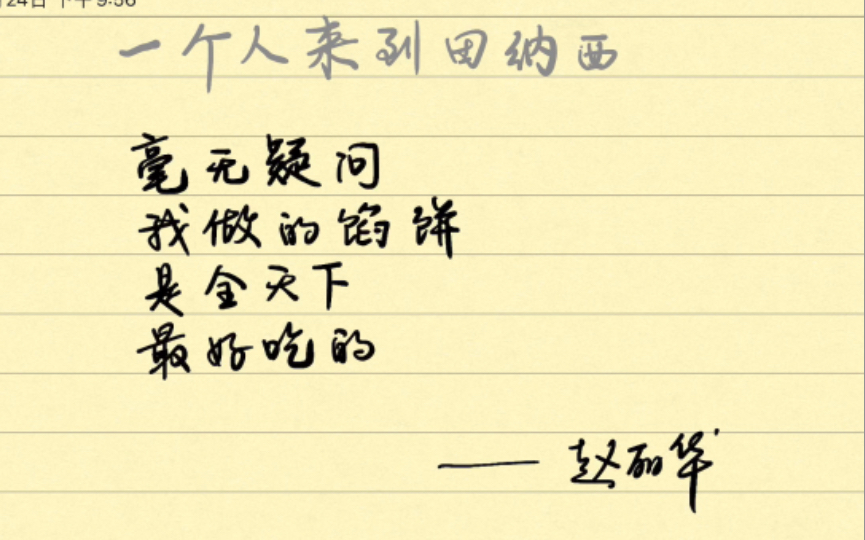 24日 下午9:56
一个人来到田纳西
毫无疑问
我做的馅饼
是全天下
最好吃的
—— 赵丽华